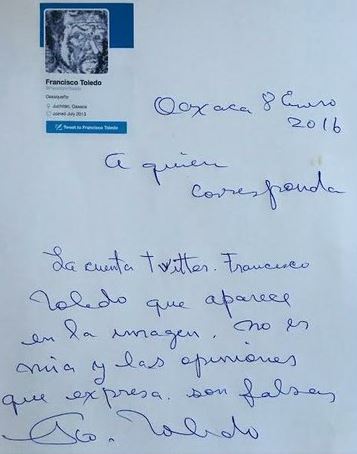 Francisco Toledo
Oaxaqueño
Juchitán, Oaxaca
Joined July 2013
Tweet to Francisco Toledo
Oaxaca 8 Enero
2016
A quien
corresponda
La cuenta twitter. Francisco
Toledo que aparece
en la imagen. no es
mia y las opiniones
que expresa. son falsas
Fco. Toledo